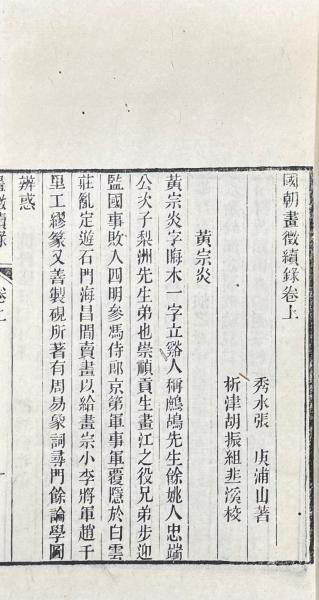 國朝畫徵續錄卷上
秀水張　庚浦山著
析津胡振組韭溪校
黃宗炎
黃宗炎字晦木一字立谿人稱鷓鴣先生餘姚人忠端
公次子梨洲先生弟也崇禎貢生畫江之役兄弟步迎
監國事敗入四明參馮侍郎京第軍事軍覆隱於白雲
莊亂定遊石門海昌間賣畫以給畫宗小李將軍趙千
里工繆篆又善製硯所著有周易象詞尋門餘論學圖
辨惑